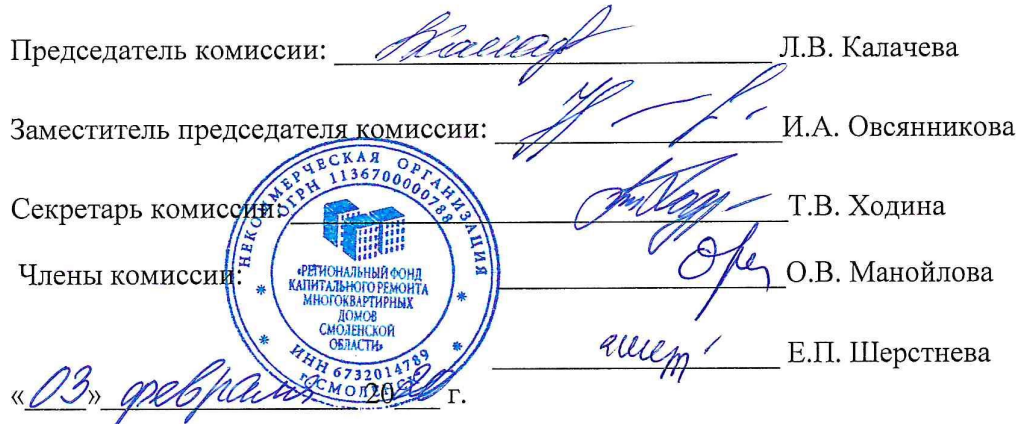 Председатель комиссии: Л.В. Калачева
Заместитель председателя комиссии: И.А. Овсянникова
Секретарь комиссии: Т.В. Ходина
Члены комиссии: О.В. Манойлова
Е.П. Шерстнева
«03» февраля 2020 г.
НЕКОММЕРЧЕСКАЯ ОРГАНИЗАЦИЯ
ОГРН 1136700000788
«РЕГИОНАЛЬНЫЙ ФОНД
КАПИТАЛЬНОГО РЕМОНТА
МНОГОКВАРТИРНЫХ
ДОМОВ
СМОЛЕНСКОЙ
ОБЛАСТИ»
ИНН 6732014789
г.СМОЛЕНСК